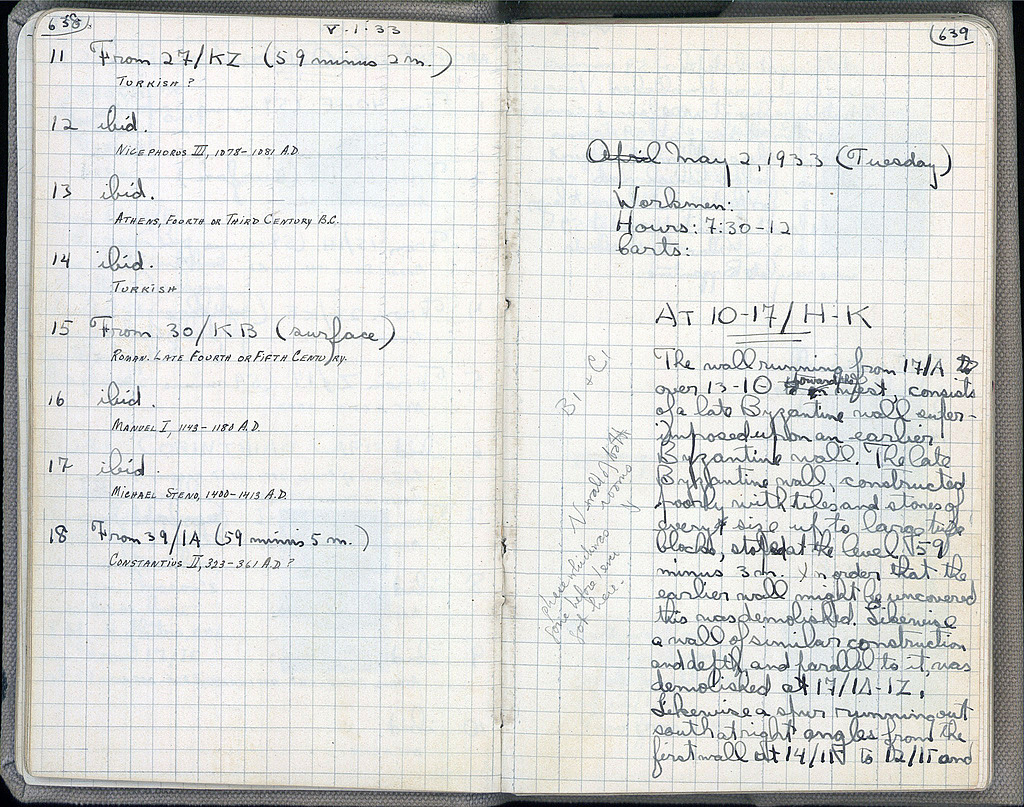 638
V.1.33
11 From 27/KZ (59 minus 2 m.)
TURKISH ?
12 ibid.
NICEPHORUS III, 1078-1081 A.D.
13 ibid.
ATHENS, FOURTH OR THIRD CENTURY B.C.
14 ibid.
TURKISH
15 From 30/KB (surface)
ROMAN. LATE FOURTH OR FIFTH CENTURY.
16 ibid.
MANUEL I, 1143-1180 A.D.
17 ibid.
MICHAEL STENO, 1400-1413 A.D.
18 From 39/IA (59 minus 5 m.)
CONSTANTIUS II, 323-361 A.D ?
639
April May 2, 1933 (Tuesday)
Workmen:
Hours: 7:30-12
Carts:
AT 10-17/H-K
The wall running from 17/IA
over 13-10 toward West, consists
of a late Byzantine wall super-
imposed upon an earlier
Byzantine wall. The late
Byzantine wall, constructed
poorly with tiles and stones of
every size up to large
blocks, at the level 59
minus 3 m. In order that the
earlier wall might be uncovered
this was demolished. Likewise
a wall of similar construction
and depth, and parallel to it, was
demolished at 17/IA-IZ.
Likewise a spur running out
south at right angles from the
first wall at 14/ to 12/ and
B1 + C1
N wall of both
rooms
phase which was
here before level